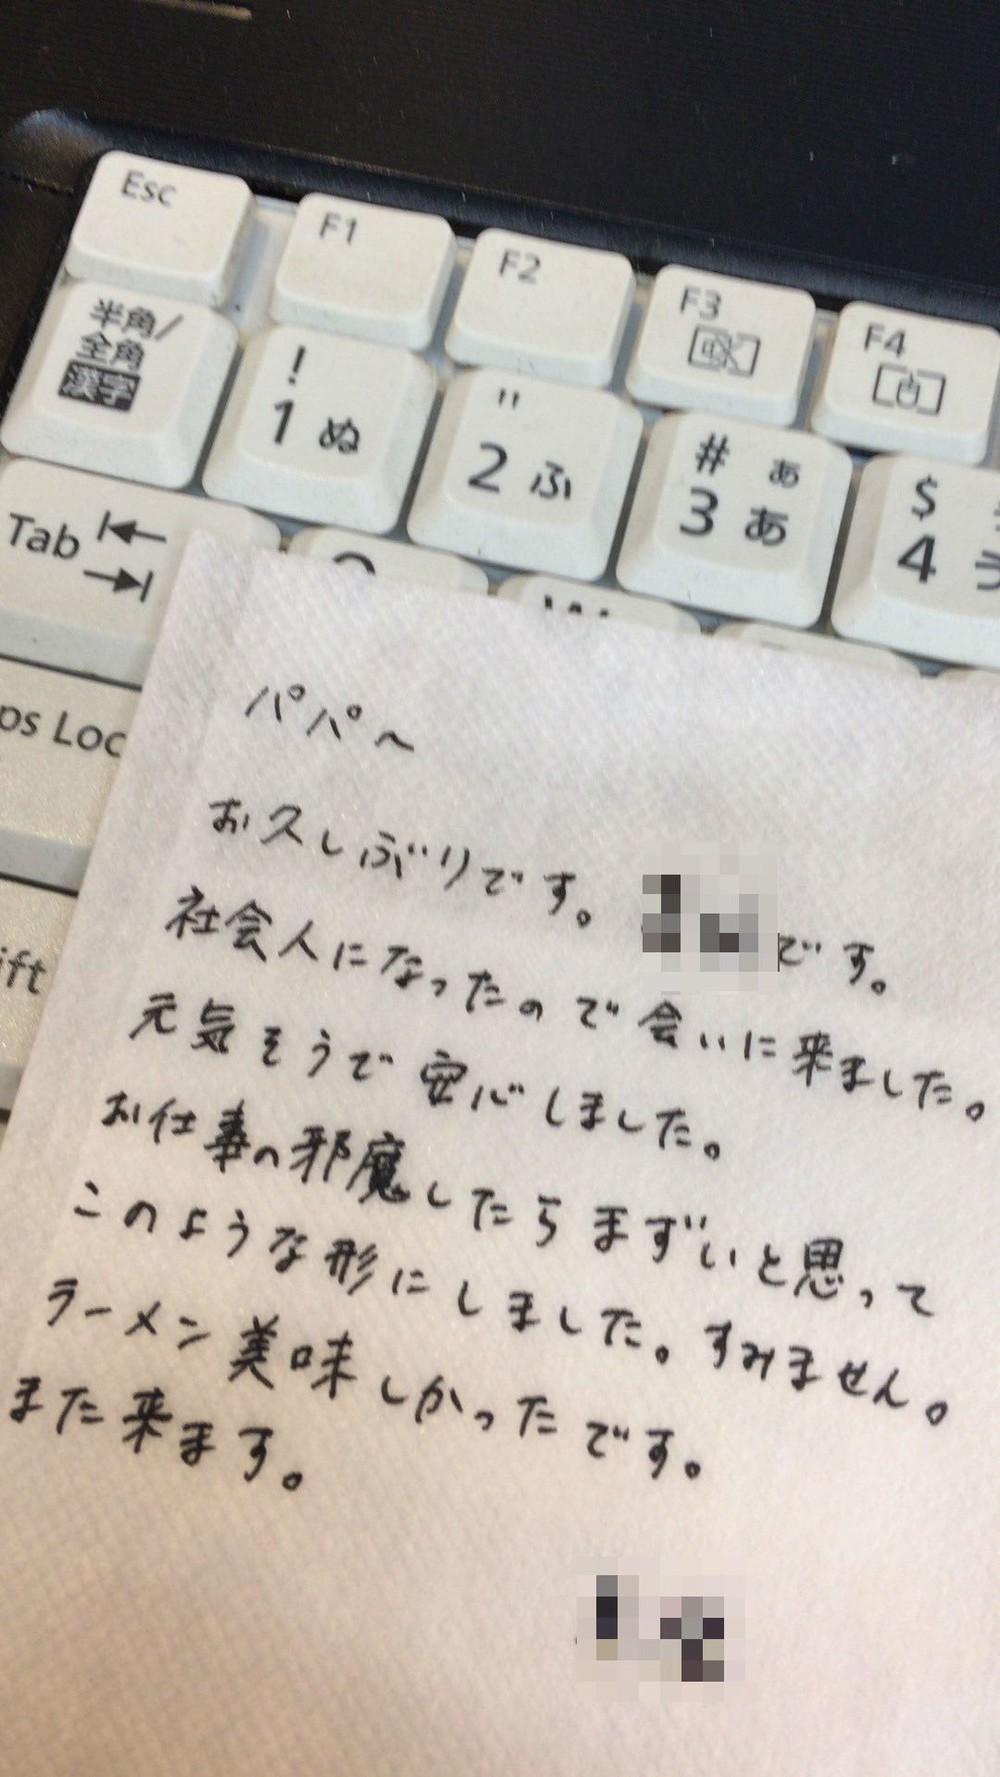 Esc F1 F2 F3 F4
半角/
全角
漢字
! 1 ぬ
" 2 ふ
# ぁ 3 あ
$ 4
Tab
パパへ
お久しぶりです。 です。
社会人になったので会いに来ました。
元気そうで安心しました。
お仕事の邪魔したらまずいと思って
このような形にしました。すみません。
ラーメン美味しかったです。
また来ます。